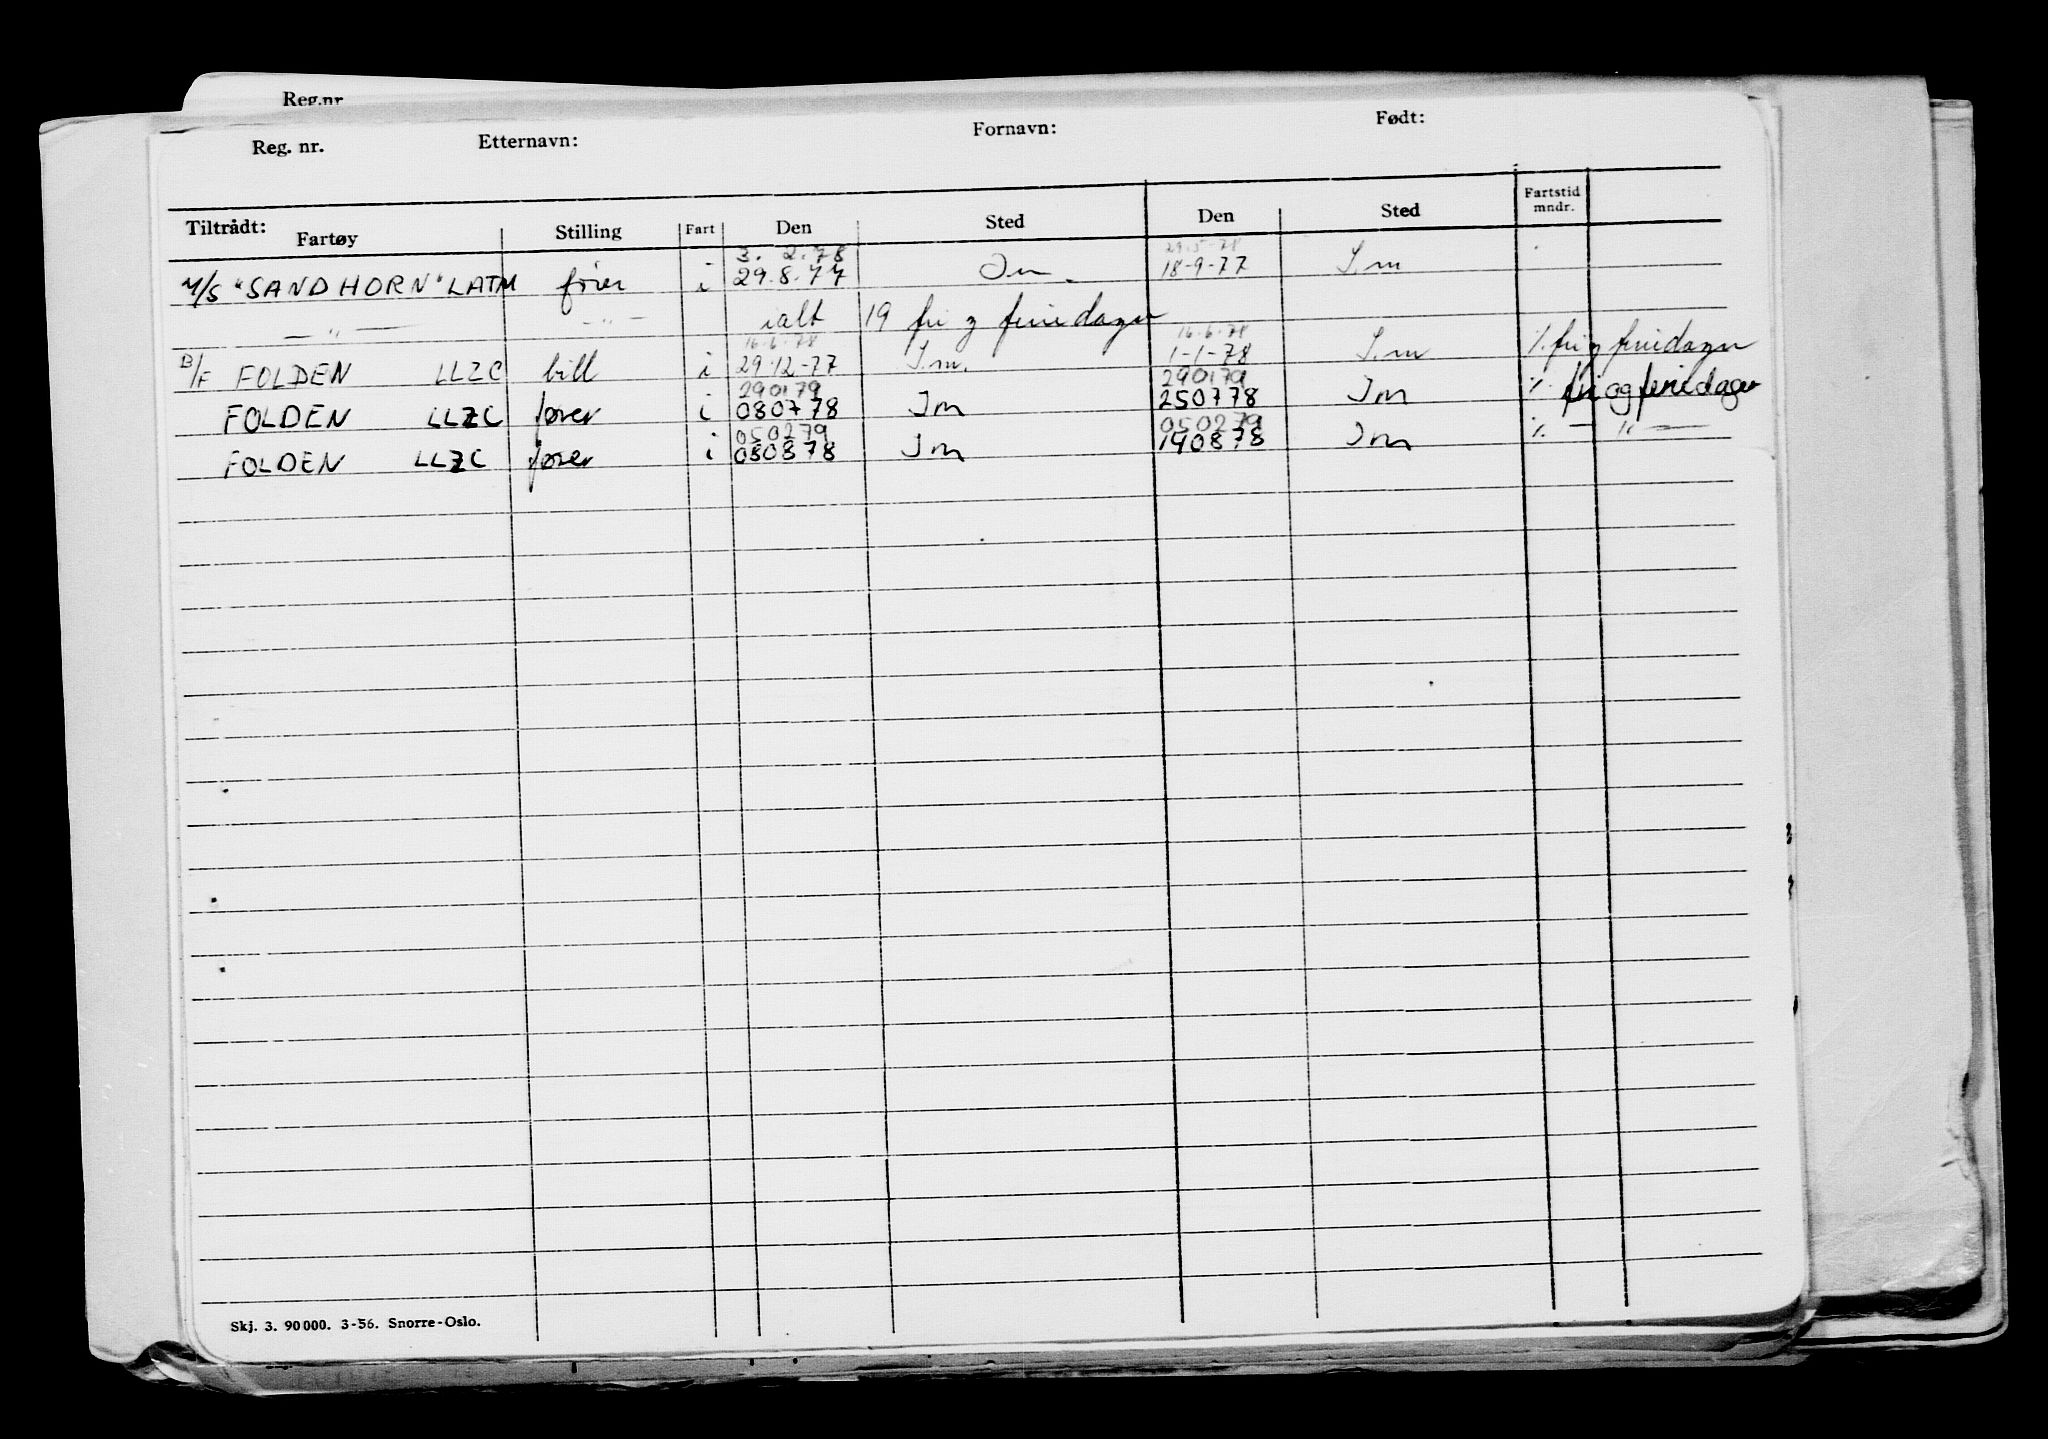 Reg.nr
Reg. nr. Etternavn: Fornavn: Født:
Tiltrådt: Fartøy Stilling Fart Den Sted Den Sted Fartstid mndr.
3. 2.78 29.5-78
M/S "SANDHORN" LATM fører i 29.8.77 Im. 18-9-77 I.m
— " — — " — ialt 19 fri og feriedager
16.6.78 16.6.78
B/F FOLDEN LLZC bill i 29.12-77 I.m. 1-1-78 I.m ⁒ fri og feriedager
290179 290179
FOLDEN LLZC fører i 080778 Im 250778 Im ⁒ fri og feriedager
050279 050279
FOLDEN LLZC fører i 080878 Im 140878 Im ⁒ — " —
Skj. 3. 90 000. 3-56. Snorre-Oslo.